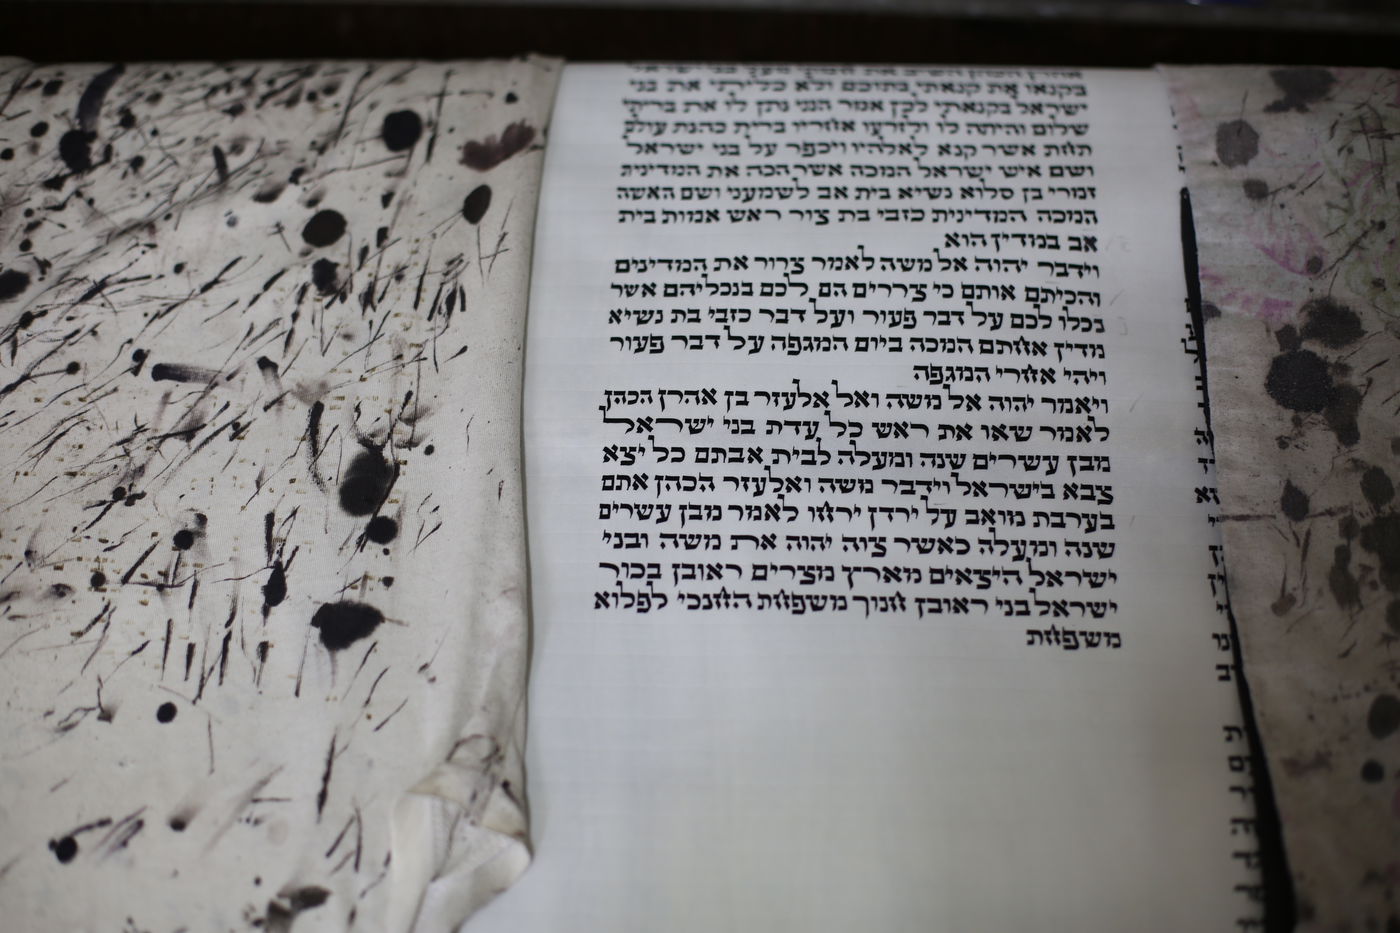 אהרן הכהן השיב את חמתי מעל בני ישראל
בקנאו את קנאתי בתוכם ולא כליתי את בני
ישראל בקנאתי לכן אמר הנני נתן לו את בריתי
שלום והיתה לו ולזרעו אחריו ברית כהנת עולם
תחת אשר קנא לאלהיו ויכפר על בני ישראל
ושם איש ישראל המכה אשר הכה את המדינית
זמרי בן סלוא נשיא בית אב לשמעני ושם האשה
המכה המדינית כזבי בת צור ראש אמות בית
אב במדין הוא
וידבר יהוה אל משה לאמר צרור את המדינים
והכיתם אותם כי צררים הם לכם בנכליהם אשר
נכלו לכם על דבר פעור ועל דבר כזבי בת נשיא
מדין אחתם המכה ביום המגפה על דבר פעור
ויהי אחרי המגפה
ויאמר יהוה אל משה ואל אלעזר בן אהרן הכהן
לאמר שאו את ראש כל עדת בני ישראל
מבן עשרים שנה ומעלה לבית אבתם כל יצא
צבא בישראל וידבר משה ואלעזר הכהן אתם
בערבת מואב על ירדן ירחו לאמר מבן עשרים
שנה ומעלה כאשר צוה יהוה את משה ובני
ישראל היצאים מארץ מצרים ראובן בכור
ישראל בני ראובן חנוך משפחת החנכי לפלוא
משפחת